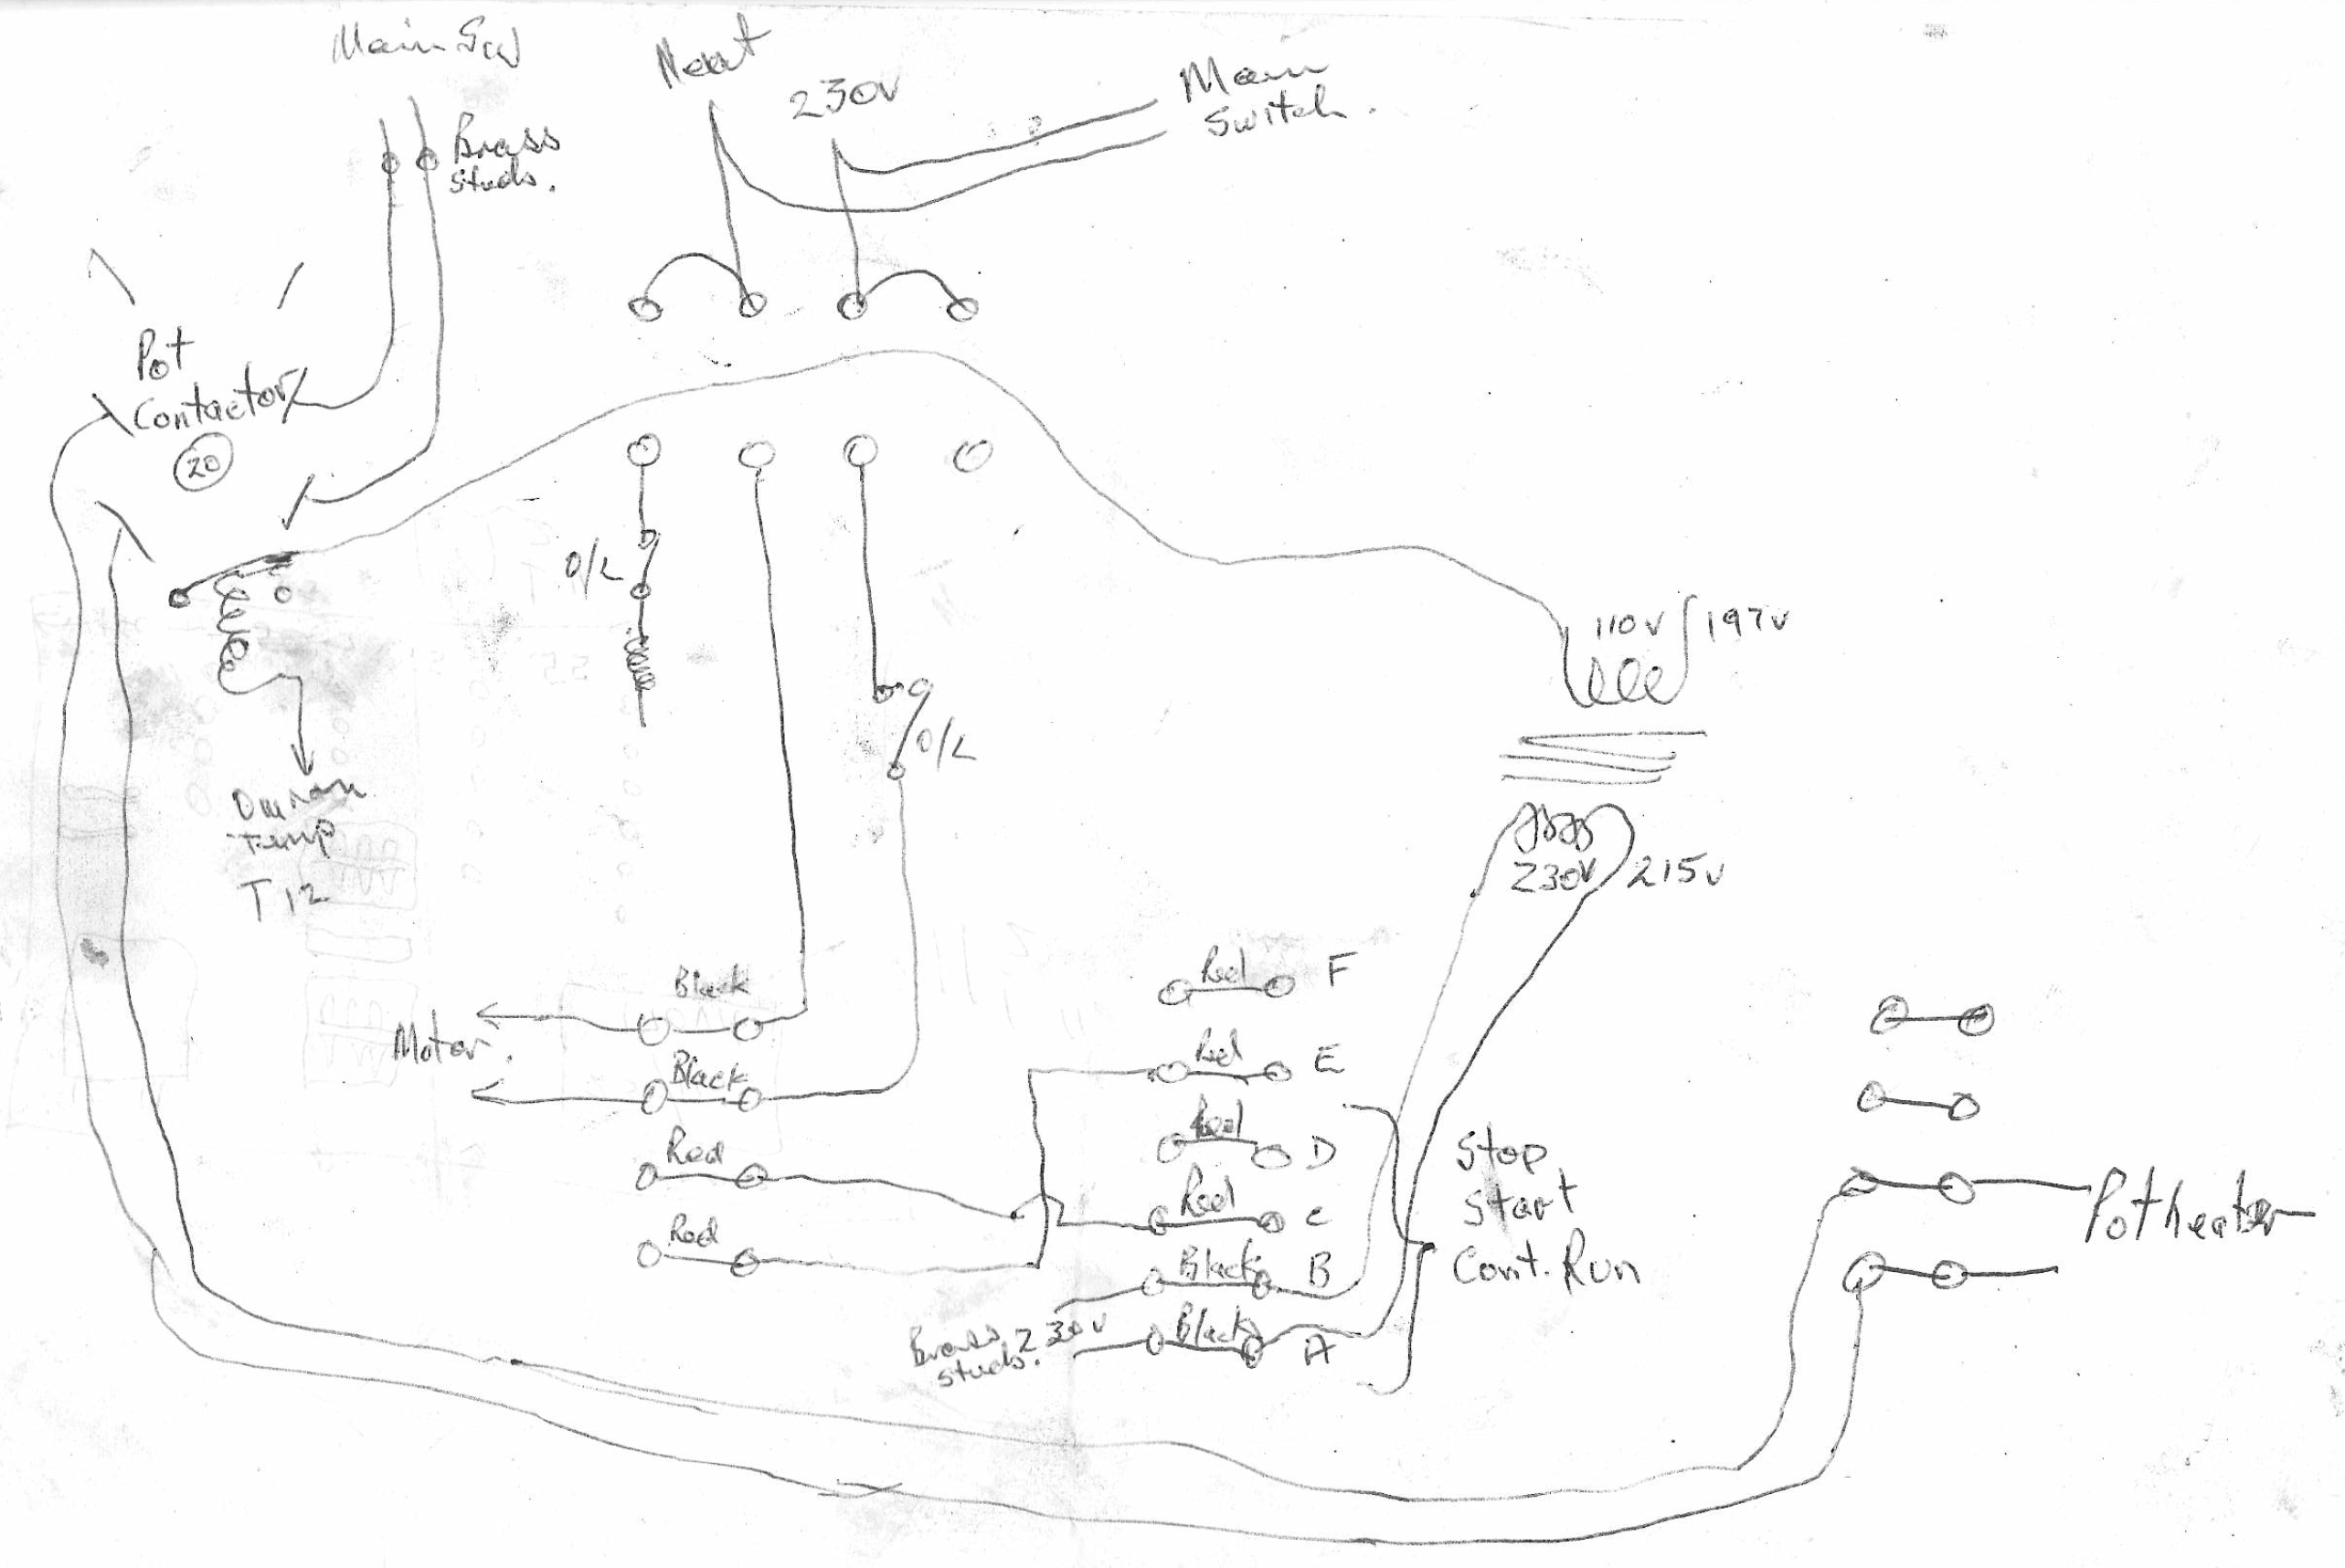 Main Sw
Neut
230v
Main
Switch.
Brass
studs.
Pot
Contactor
20
O/L
110v
197v
O/L
Omron
Temp
T12
230v
215v
Black
Motor.
Black
Red
Red
Red F
Red E
Red D
Red C
Black B
Black A
Brass 230v
studs.
Stop
Start
Cont. Run
Pot heater